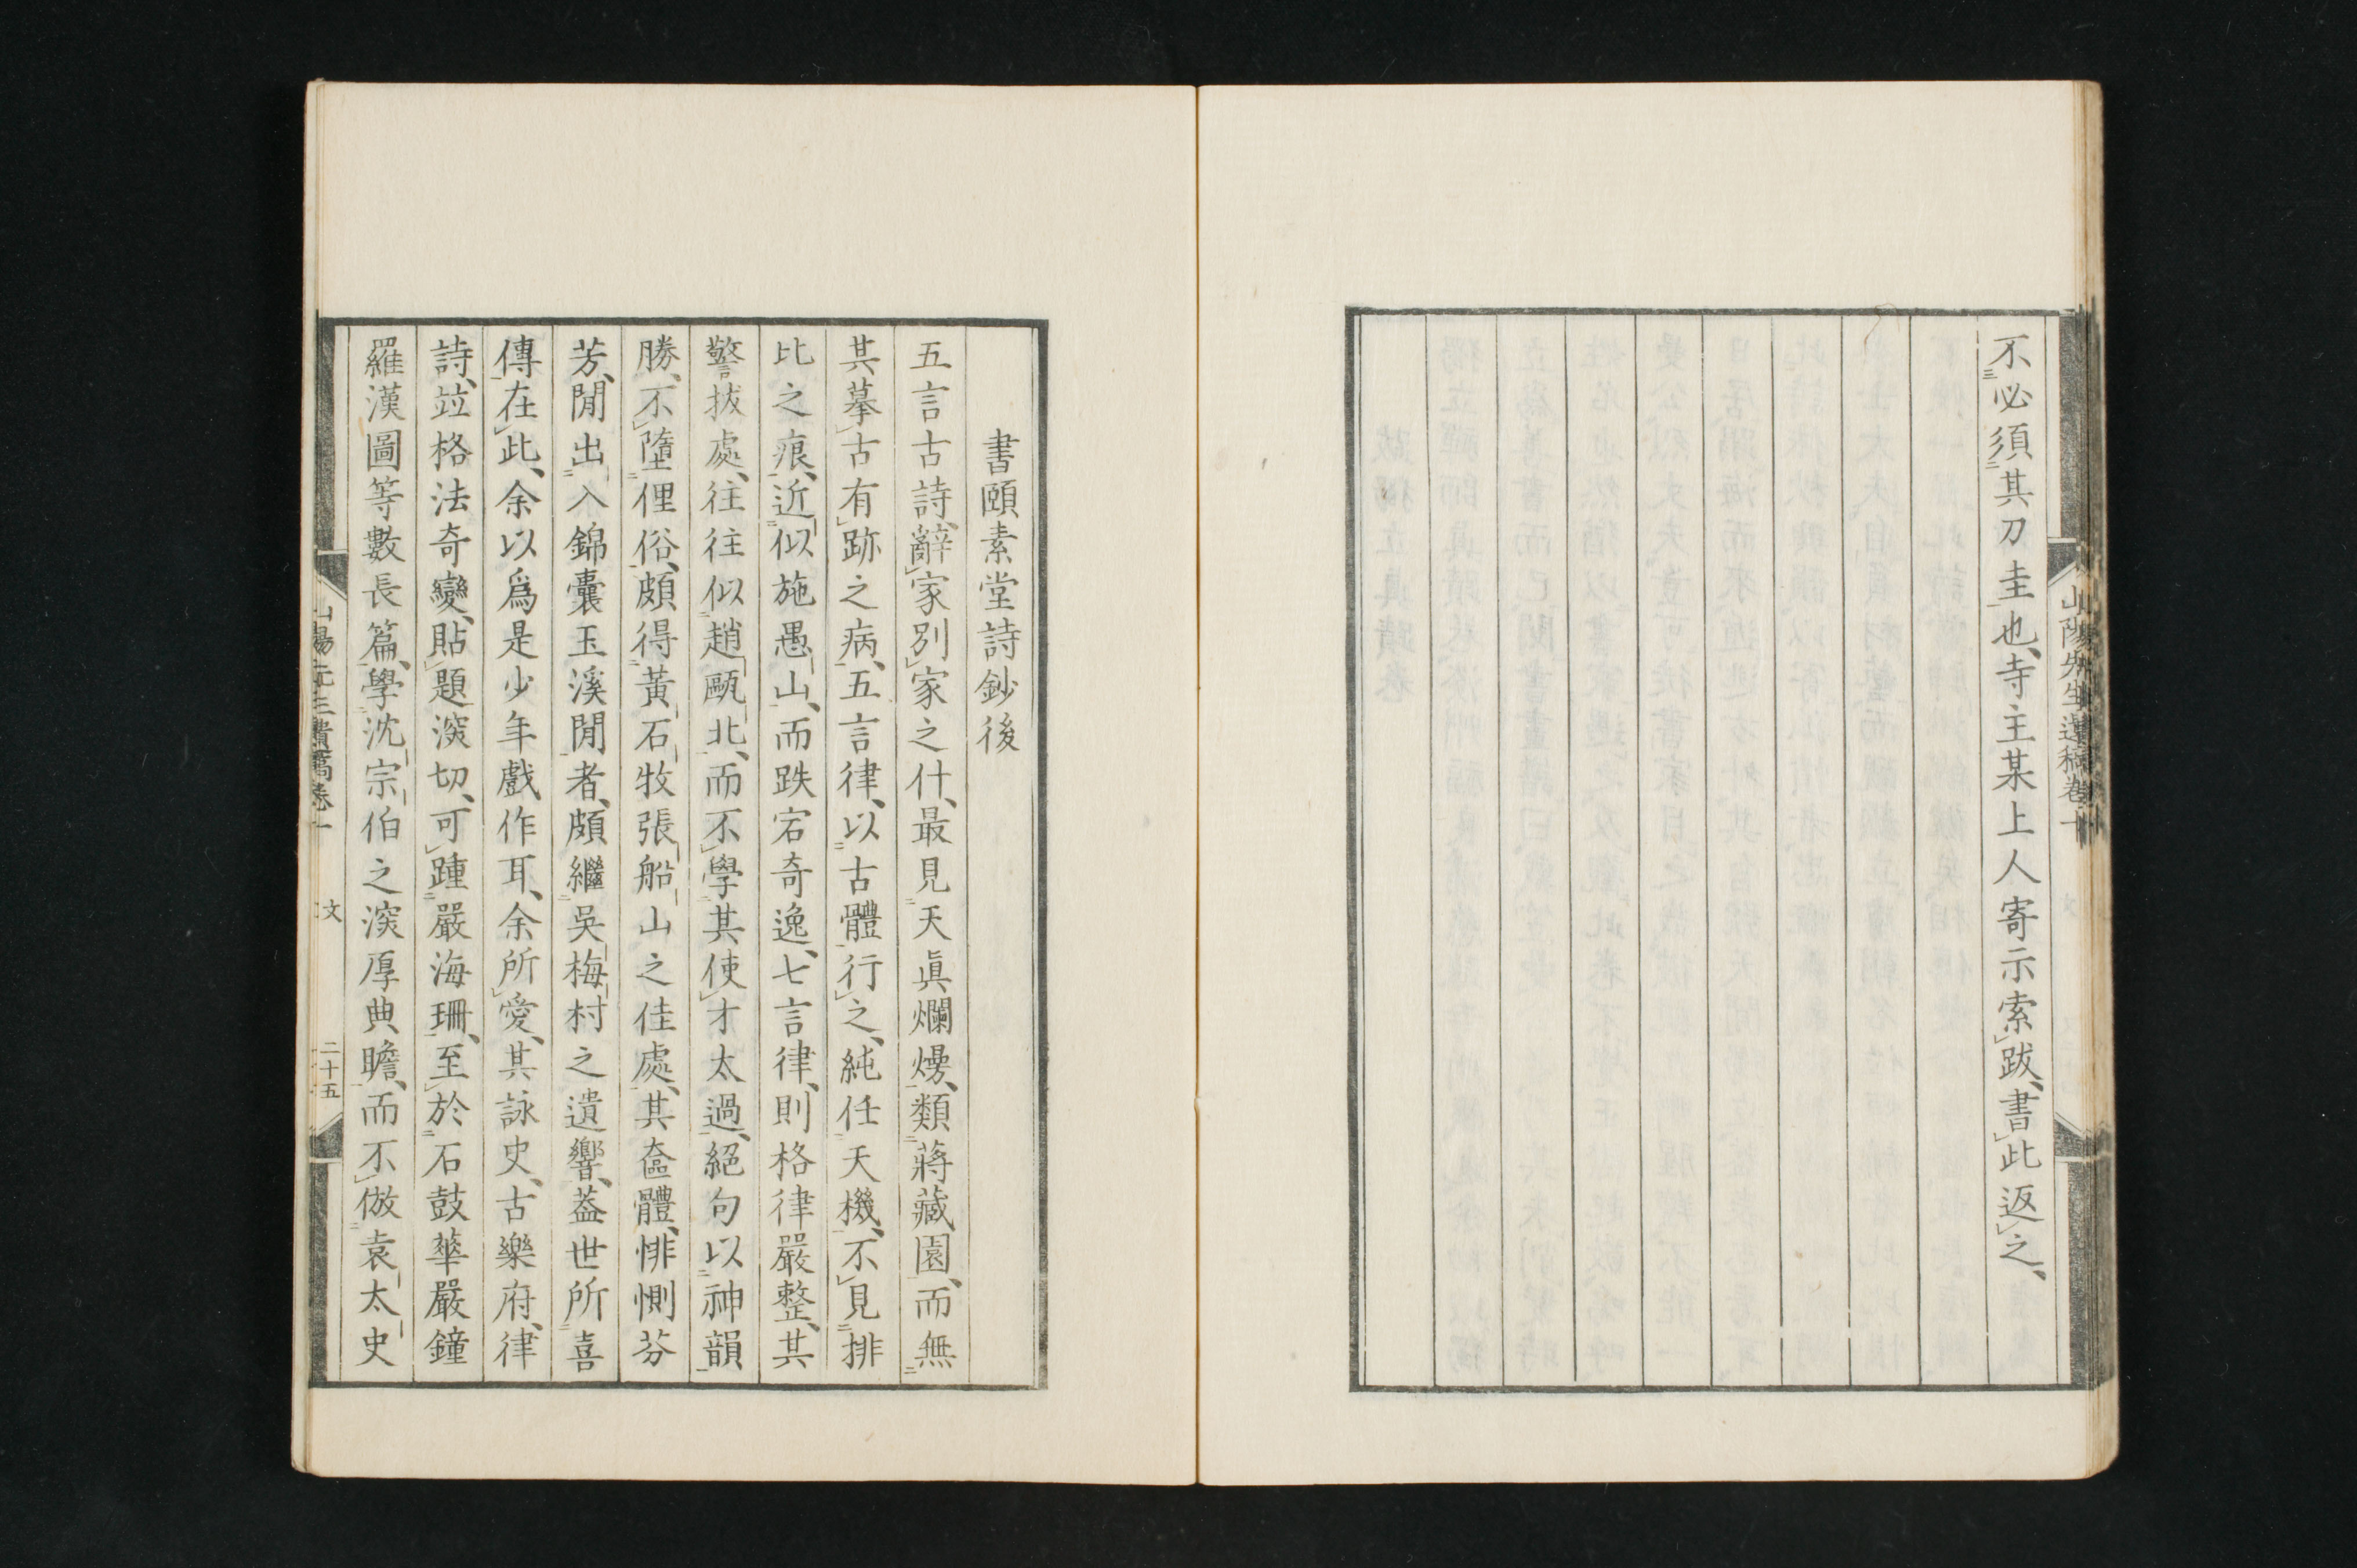 山陽先生遺稿卷十
不必須其刀圭也、寺主某上人寄示索跋、書此返之、
書頤素堂詩鈔後
五言古詩、辭家別家之什、最見天眞爛熳、類蔣藏園、而無
其摹古有跡之病、五言律、以古體行之、純任天機、不見排
比之痕、近似施愚山、而跌宕奇逸、七言律、則格律嚴整、其
警拔處、往往似趙甌北、而不學其使才太過、絕句以神韻
勝、不墮俚俗、頗得黃石牧張船山之佳處、其奩體、悱惻芬
芳、閒出入錦囊玉溪閒者、頗繼吳梅村之遺響、葢世所喜
傳在此、余以爲是少年戲作耳、余所愛、其詠史、古樂府、律
詩、竝格法奇變、貼題深切、可踵嚴海珊、至於石鼓華嚴鐘
羅漢圖等數長篇、學沈宗伯之深厚典瞻、而不倣袁太史
文
二十五